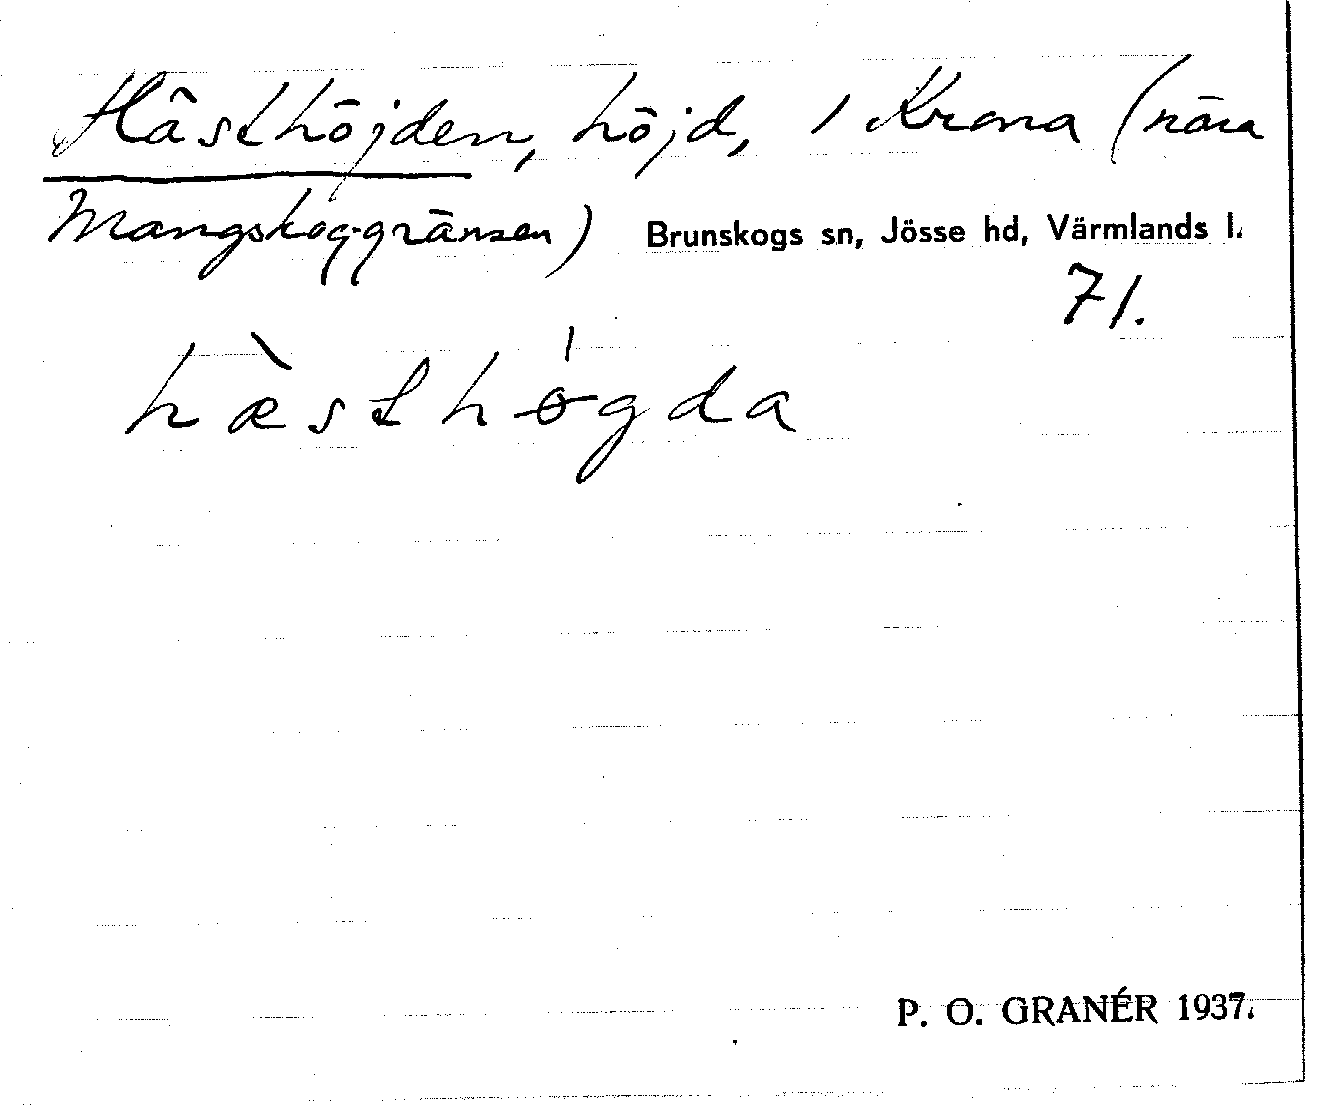 Hästhöjden, höjd, 1 Krona (nära
Mangskog-gränsen) Brunskogs sn, Jösse hd, Värmlands l.
71.
hæ̀sthǿ̵gda
P. O. GRANÉR 1937.